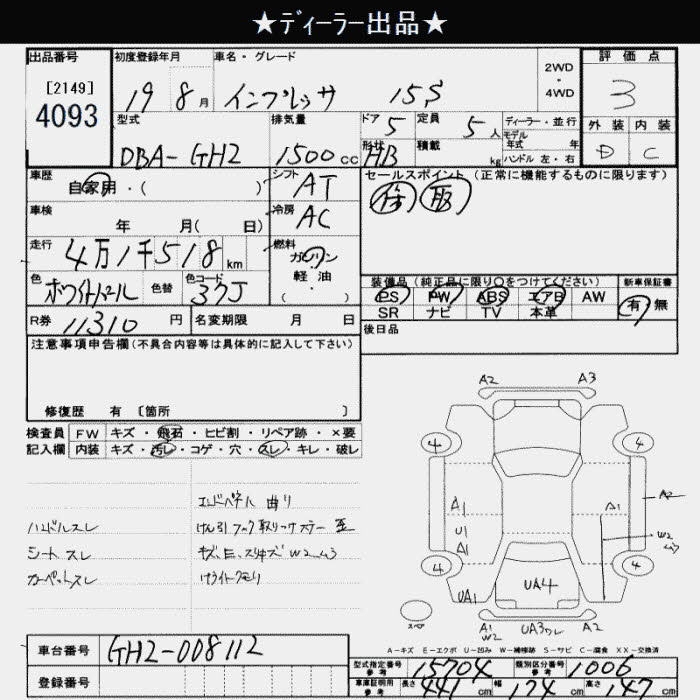 ★ディーラー出品★
出品番号 初度登録年月 車名・グレード 2WD ・ 4WD 評価点
[2149] 4093 19 8月 インプレッサ 15S 3
型式 排気量 ドア 定員 ディーラー・並行 外装 内装
DBA-GH2 1500cc 5 5人 モデル年式 年 D C
形状 HB 積載 kg ハンドル 左・右
車歴 自家用・( ) シフト AT セールスポイント (正常に機能するものに限ります)
車検 年 月( 日) 冷房 AC
走行 4万1千518km 燃料 ガソリン 軽・油 ・( )
色 ホワイトパール 色替 色コード 37J
装備品 (純正品に限り○をつけてください) 新車保証書
PS PW ABS エアB AW 有・無
SR ナビ TV 本革
R券 11310円 名変期限 月 日 後日品
注意事項申告欄(不具合内容等は具体的に記入して下さい)
修復歴 有 [箇所 ]
検査員 FW キズ・飛石・ヒビ割・リペア跡・×要
記入欄 内装 キズ・汚レ・コゲ・穴・スレ・キレ・破レ
ハンドルスレ
シートスレ
カーペットスレ
A2 A3
4 4
A1 A1 A2
U1 W2
A1
4 4
UA1 UA4
スペア A1 W2 UA3ワレ A2
A-キズ E-エクボ U-凹み W-補修跡 S-サビ C-腐食 XX-交換済
車台番号 GH2-008112
登録番号
型式指定番号 参考 15704 類別区分番号 参考 1006
車庫証明用 参考 長さ 441cm 幅 174cm 高さ 147cm